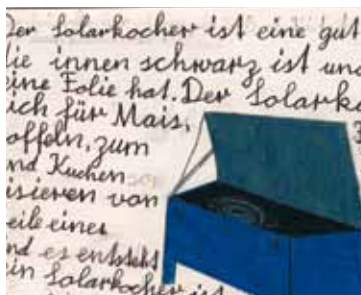 Der Solarkocher ist eine gut
die innen schwarz ist und
eine Folie hat. Der Solark
ich für Mais,
offeln, zum
nd Kuchen
isieren von
eile einer
nd es entsteht
in Solarkocher ist